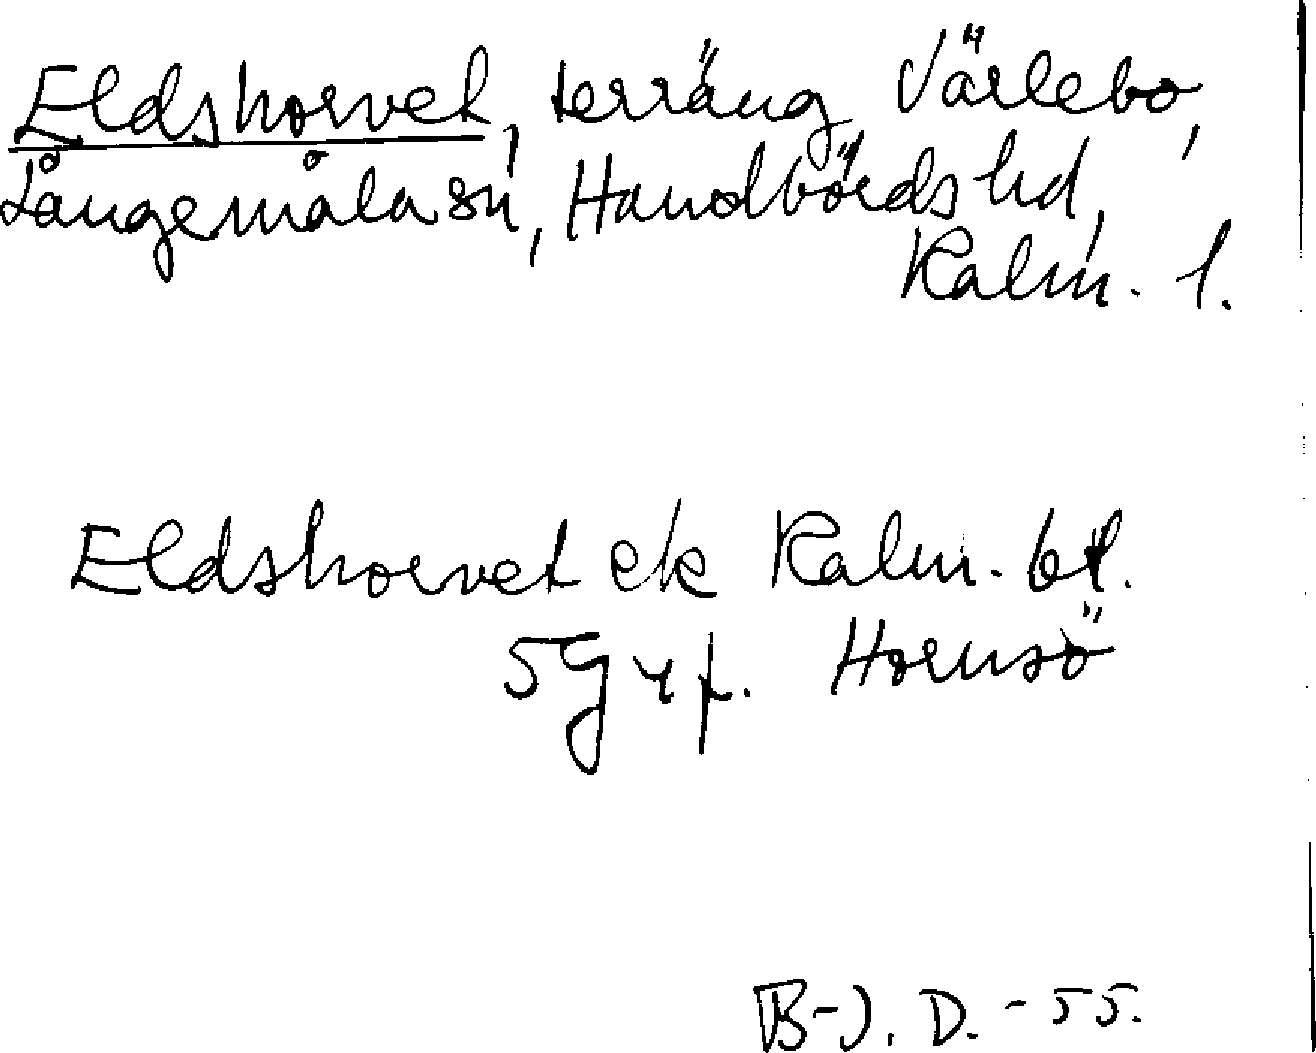 Eldshorvet, terräng Värlebo,
Långemåla sn, Handbörds hd,
Kalm. l.
Eldshorvet ek Kalm. bl.
5G y f. Hornsö
B-J. D. - 55.